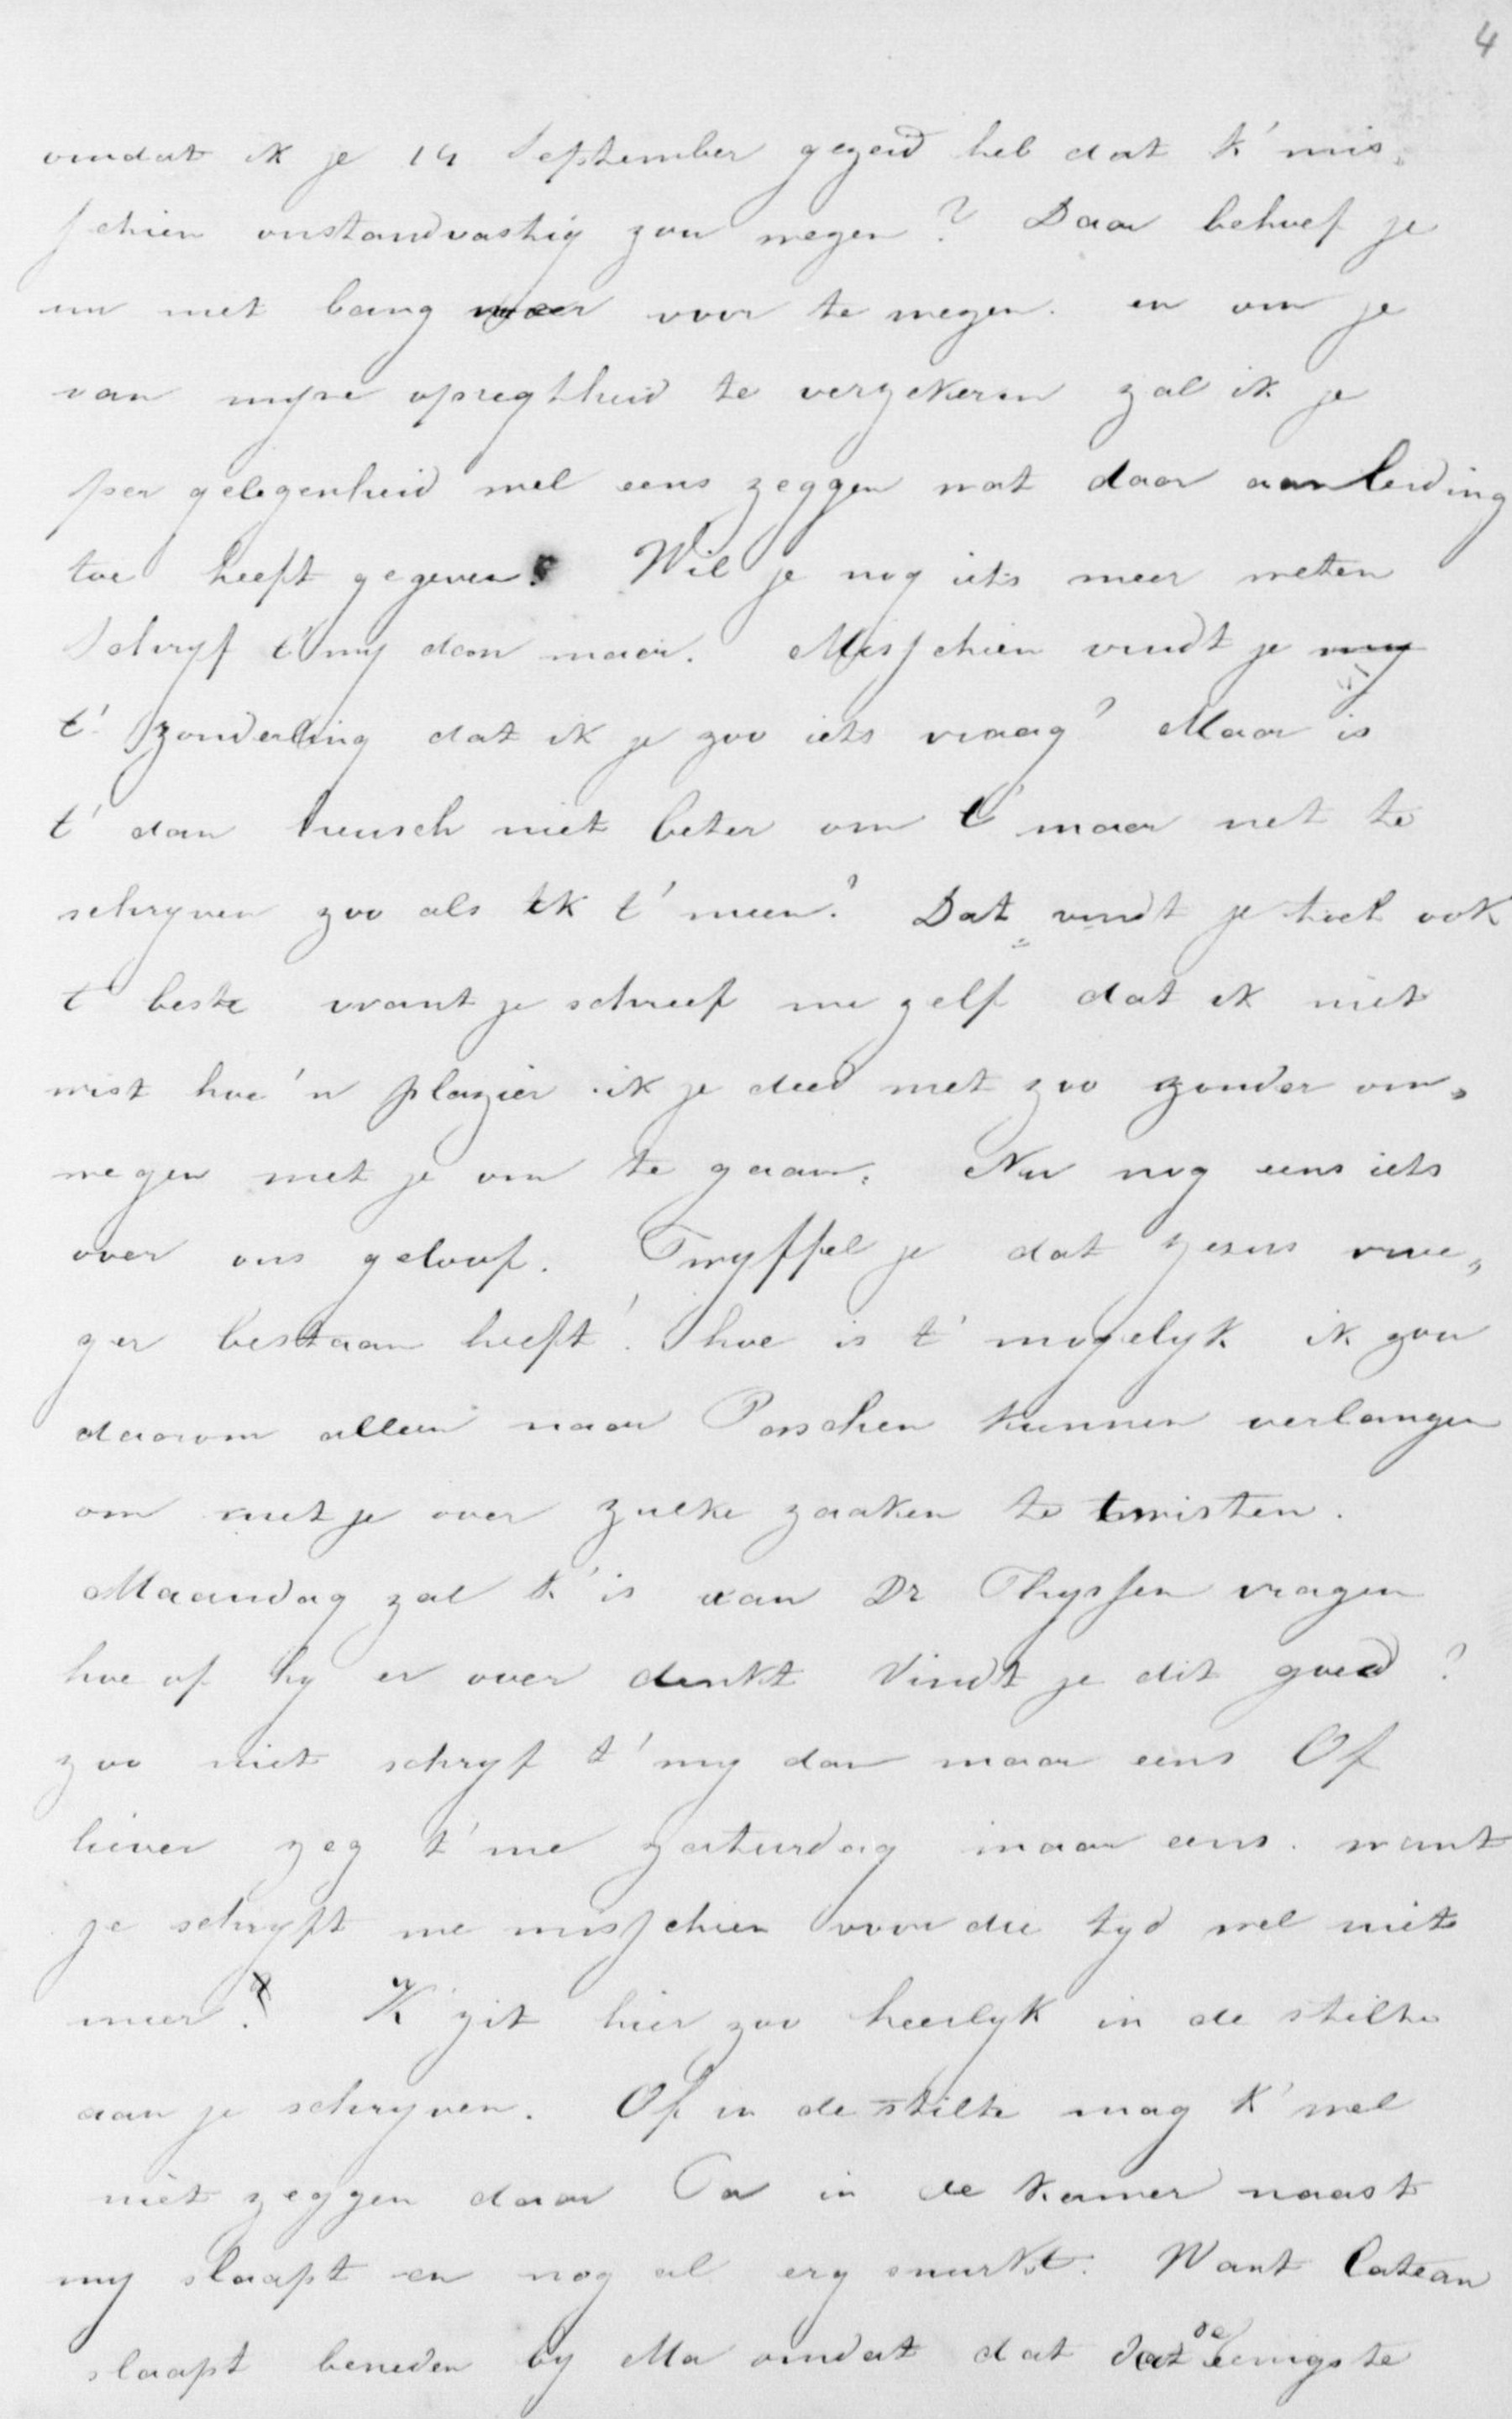 4
omdat ik je 14 September gezeid heb dat k' mis„
schien onstandvastig zou wezen? Daar behoef je
nu niet bang meer voor te wezen. en om je
van myne opregtheid te verzekeren zal ik je
per gelegenheid wel eens zeggen wat daar aanleiding
toe heeft gegeven. Wil je nog iets meer weten
Schryf t'my dan maar. Misschien vindt je my
t' zonderling dat ik je zoo iets vraag? Maar is
t' dan heusch niet beter om t' maar net te
schryven zoo als ik t' meen? Dat vindt je toch ook
t' beste want je schreef me zelf dat ik niet
wist hoe'n plazier ik je deed met zoo zonder om„
wegen met je om te gaan. Nu nog eens iets
over ons geloof. Twyffel je dat Jezus vroe„
ger bestaan heeft! hoe is t' mogelyk ik zou
daarom alleen naar Paschen kunnen verlangen
om met je over zulke zaaken te twisten.
Maandag zal k' is aan Dr Thyssen vragen
hoe of hy er over denkt Vindt je dit goed?
zoo niet schryf t' my dan maar eens Of
liever zeg t' me zaturdag maar eens. want
je schryft me misschien voor die tyd wel niet
meer? K' zit hier zoo heerlyk in de stilte
aan je schryven. Of in de stilte mag k' wel
niet zeggen daar Pa in de kamer naast
my slaapt en nog al erg snurkt. Want Catean
slaapt beneden by Ma omdat dat dat de eenigste